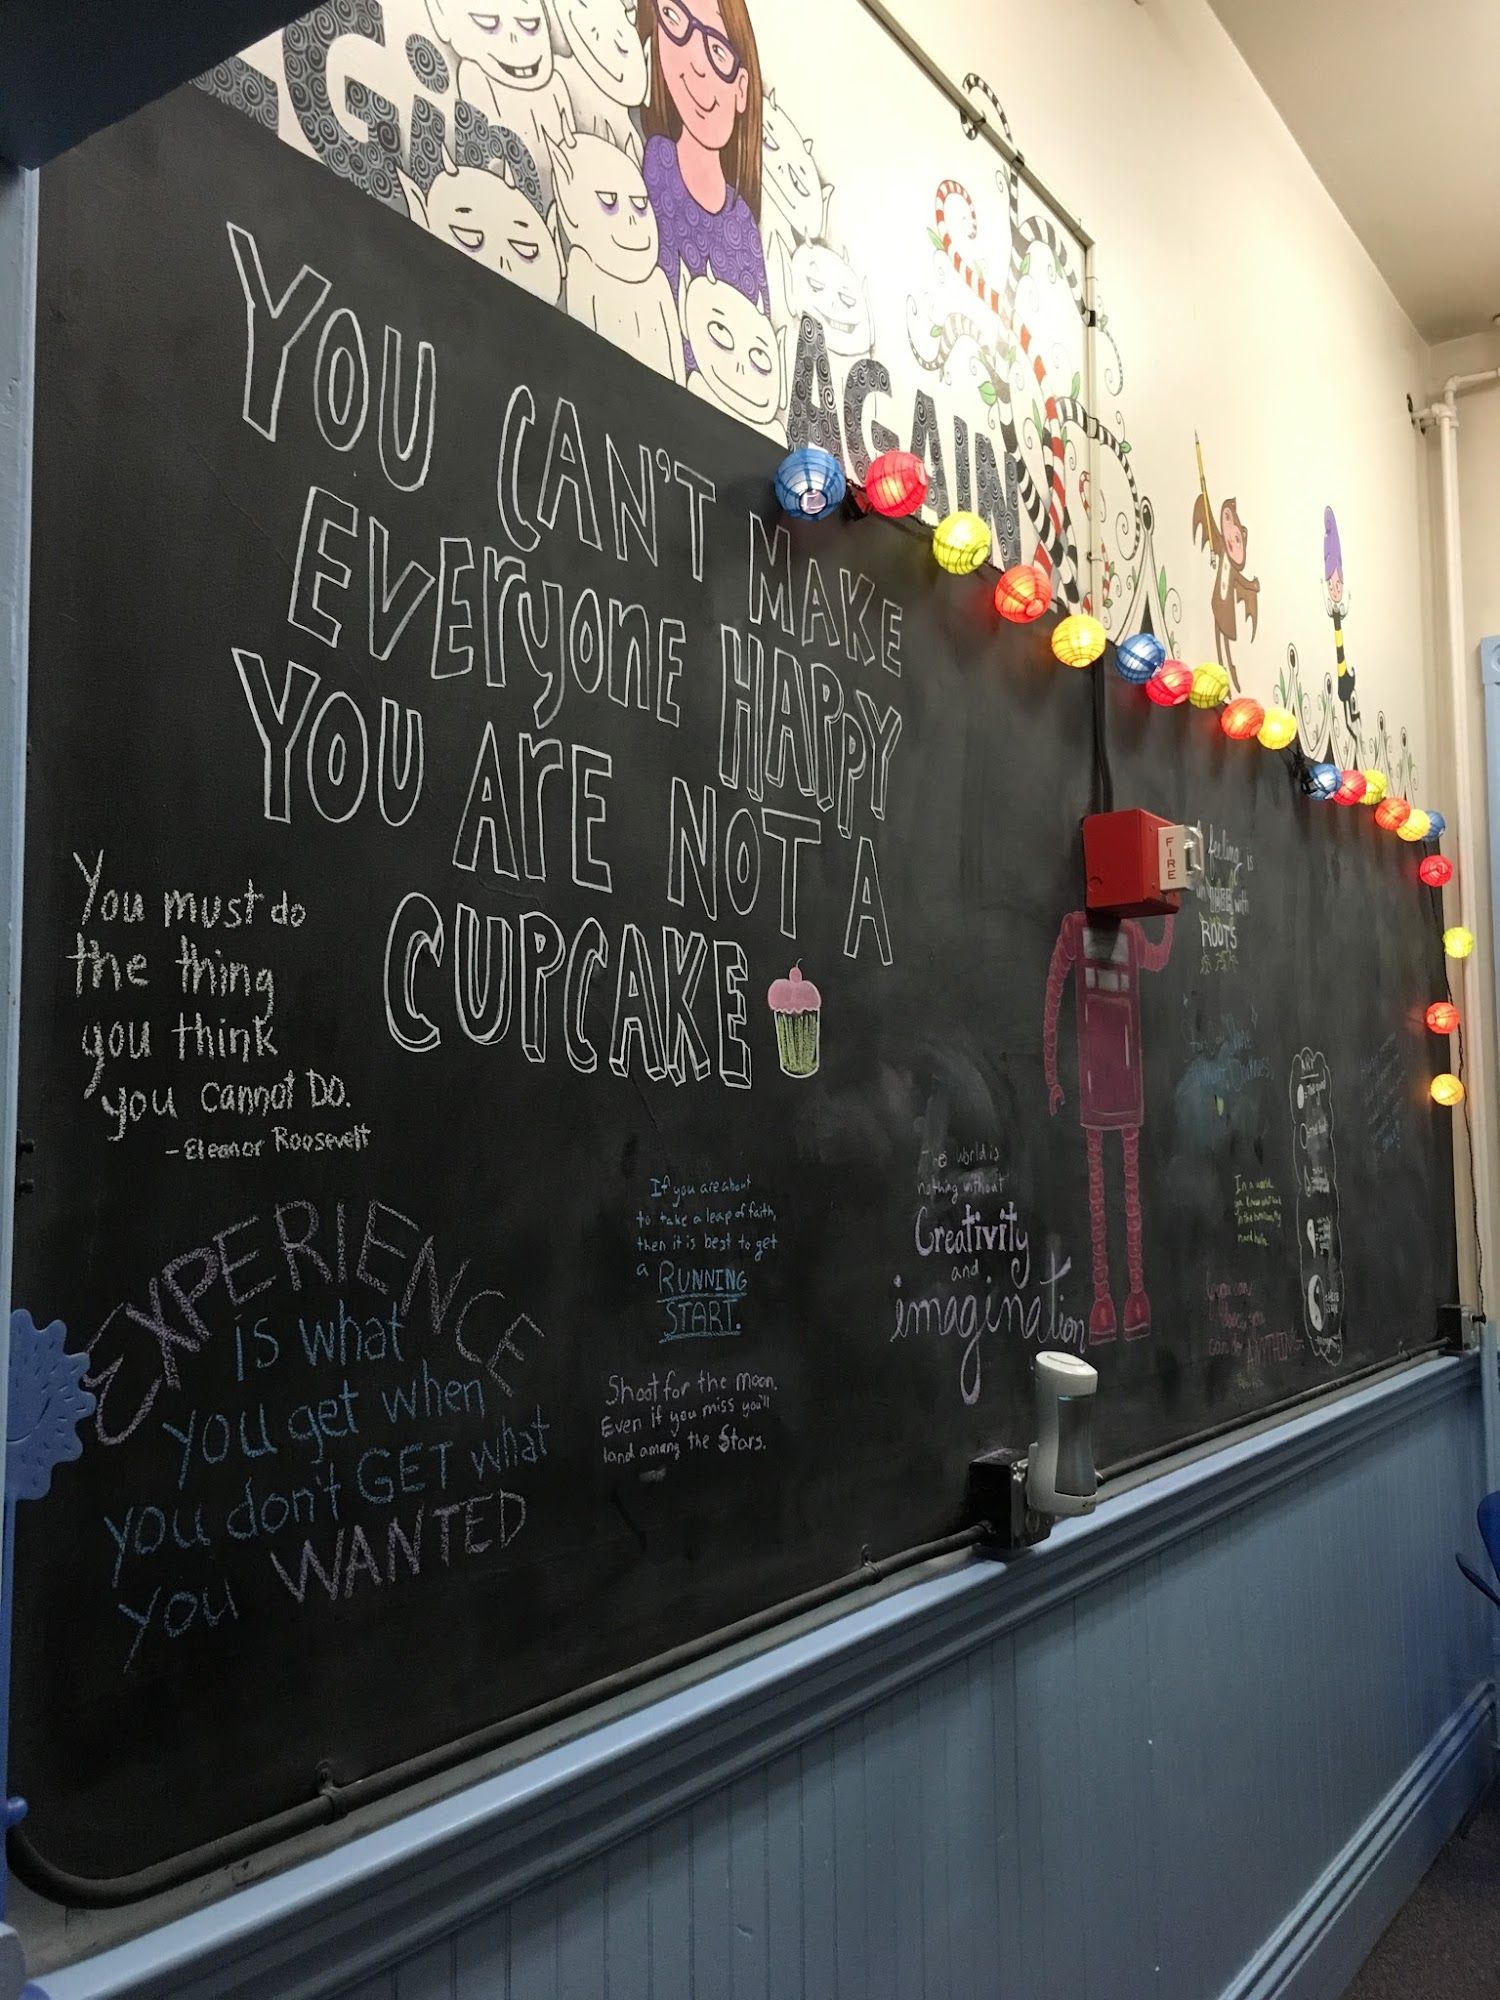 AGAIN
AGAIN
YOU CAN'T MAKE
EVEryonE HAPPY
YOU ArE NOT A
CUPCAKE
You must do
the thing
you think
you cannot DO.
-Eleanor Roosevelt
EXPERIENCE
is what
you get when
you don't GET what
you WANTED
If you are about
to take a leap of faith,
then it is best to get
a RUNNING
START.
Shoot for the moon.
Even if you miss you'll
land among the Stars.
The World is
nothing without
Creativity
and
imagination
FIRE
feeling is
with
ROOTS
In a world
ART
you can
you
can do ANYTHING